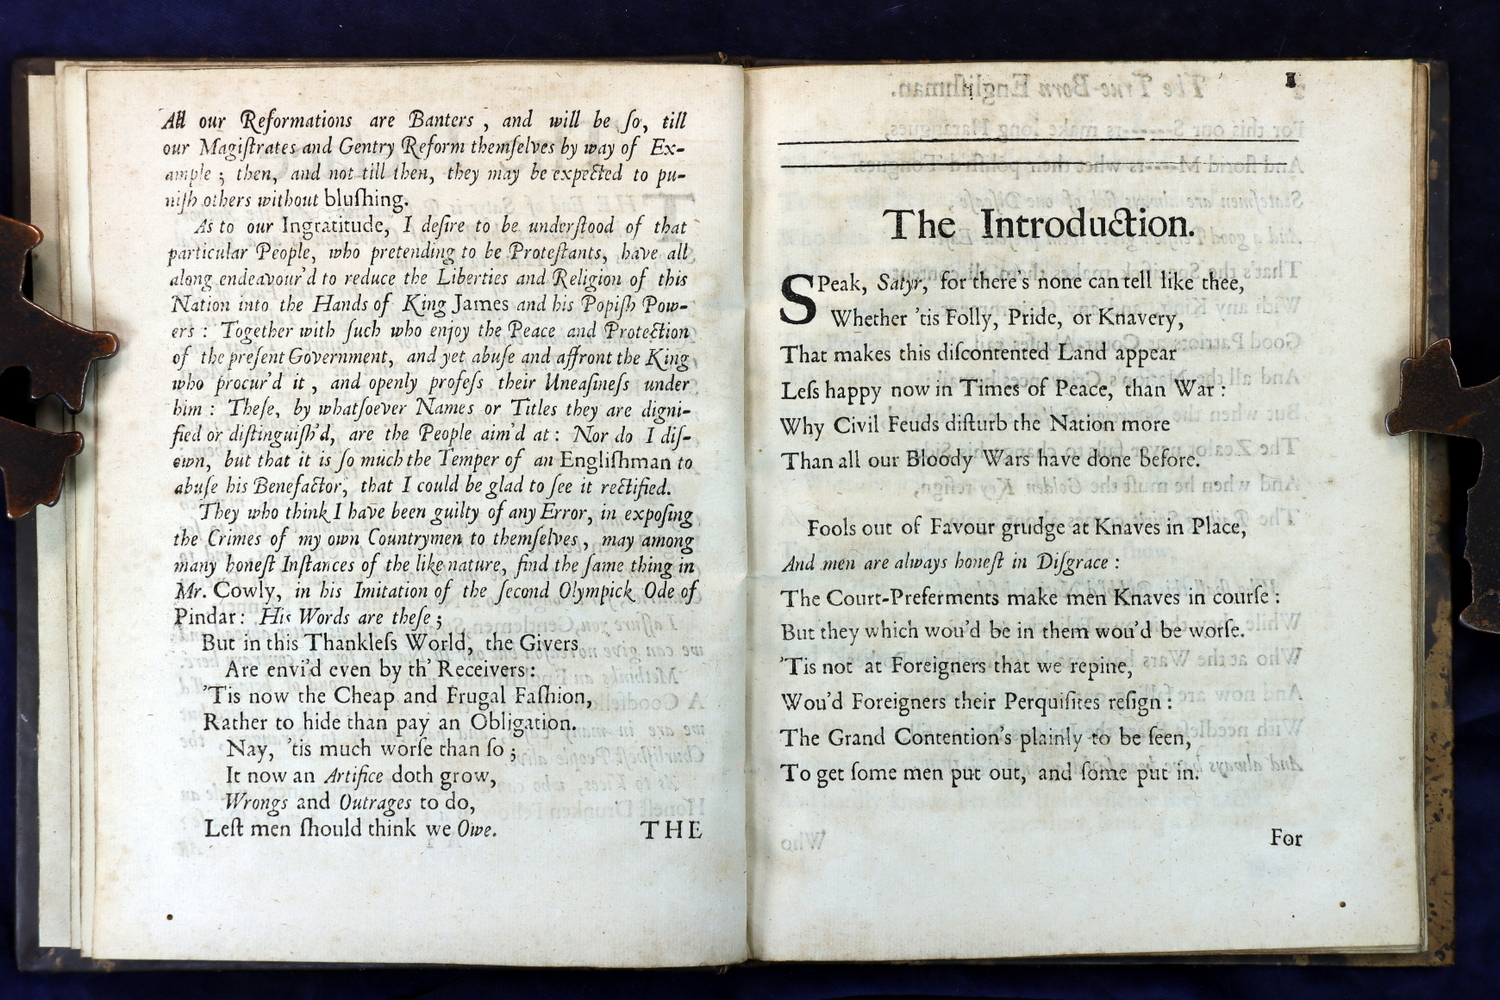 All our Reformations are Banters , and will be ſo, till
our Magiſtrates and Gentry Reform themſelves by way of Ex-
ample ; then, and not till then, they may be expected to pu-
niſh others without bluſhing.
As to our Ingratitude, I deſire to be underſtood of that
particular People, who pretending to be Proteſtants, have all
along endeavour'd to reduce the Liberties and Religion of this
Nation into the Hands of King James and his Popiſh Pow-
ers : Together with ſuch who enjoy the Peace and Protection
of the preſent Government, and yet abuſe and affront the King
who procur'd it , and openly profeſs their Uneaſineſs under
him : Theſe, by whatſoever Names or Titles they are digni-
fied or diſtinguiſh'd, are the People aim'd at : Nor do I diſ-
own, but that it is ſo much the Temper of an Engliſhman to
abuſe his Benefactor, that I could be glad to ſee it rectified.
They who think I have been guilty of any Error, in expoſing
the Crimes of my own Countrymen to themſelves , may among
many honeſt Inſtances of the like nature, find the ſame thing in
Mr. Cowly, in his Imitation of the ſecond Olympick Ode of
Pindar : His Words are theſe ;
But in this Thankleſs World, the Givers
Are envi'd even by th' Receivers :
'Tis now the Cheap and Frugal Faſhion,
Rather to hide than pay an Obligation.
Nay, 'tis much worſe than ſo ;
It now an Artifice doth grow,
Wrongs and Outrages to do,
Leſt men ſhould think we Owe.
THE
The Introduction.
SPeak, Satyr, for there's none can tell like thee,
Whether 'tis Folly, Pride, or Knavery,
That makes this diſcontented Land appear
Leſs happy now in Times of Peace, than War :
Why Civil Feuds diſturb the Nation more
Than all our Bloody Wars have done before.
Fools out of Favour grudge at Knaves in Place,
And men are always honeſt in Diſgrace :
The Court-Preferments make men Knaves in courſe :
But they which wou'd be in them wou'd be worſe.
'Tis not at Foreigners that we repine,
Wou'd Foreigners their Perquiſites reſign :
The Grand Contention's plainly to be ſeen,
To get ſome men put out, and ſome put in.
For